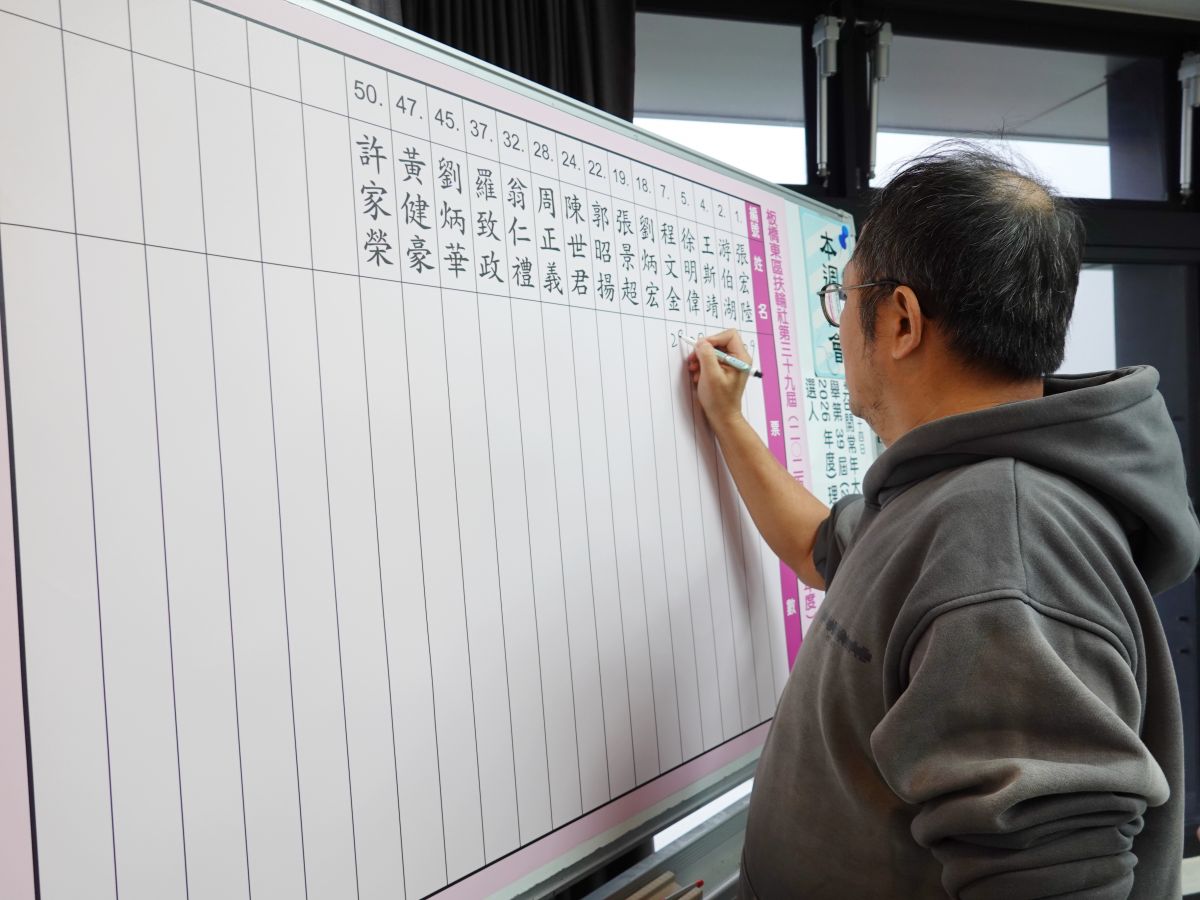 本週
會
舉第 39 屆
2026 年度）理
選人
板橋東區扶輪社第三十九屆（二〇二
年度）
編號 姓名 票數
1. 張宏陸
2. 游伯湖
4. 王斯靖
5. 徐明偉
7. 程文金 29
18. 劉炳宏
19. 張景超
22. 郭昭揚
24. 陳世君
28. 周正義
32. 翁仁禮
37. 羅致政
45. 劉炳華
47. 黃健豪
50. 許家榮